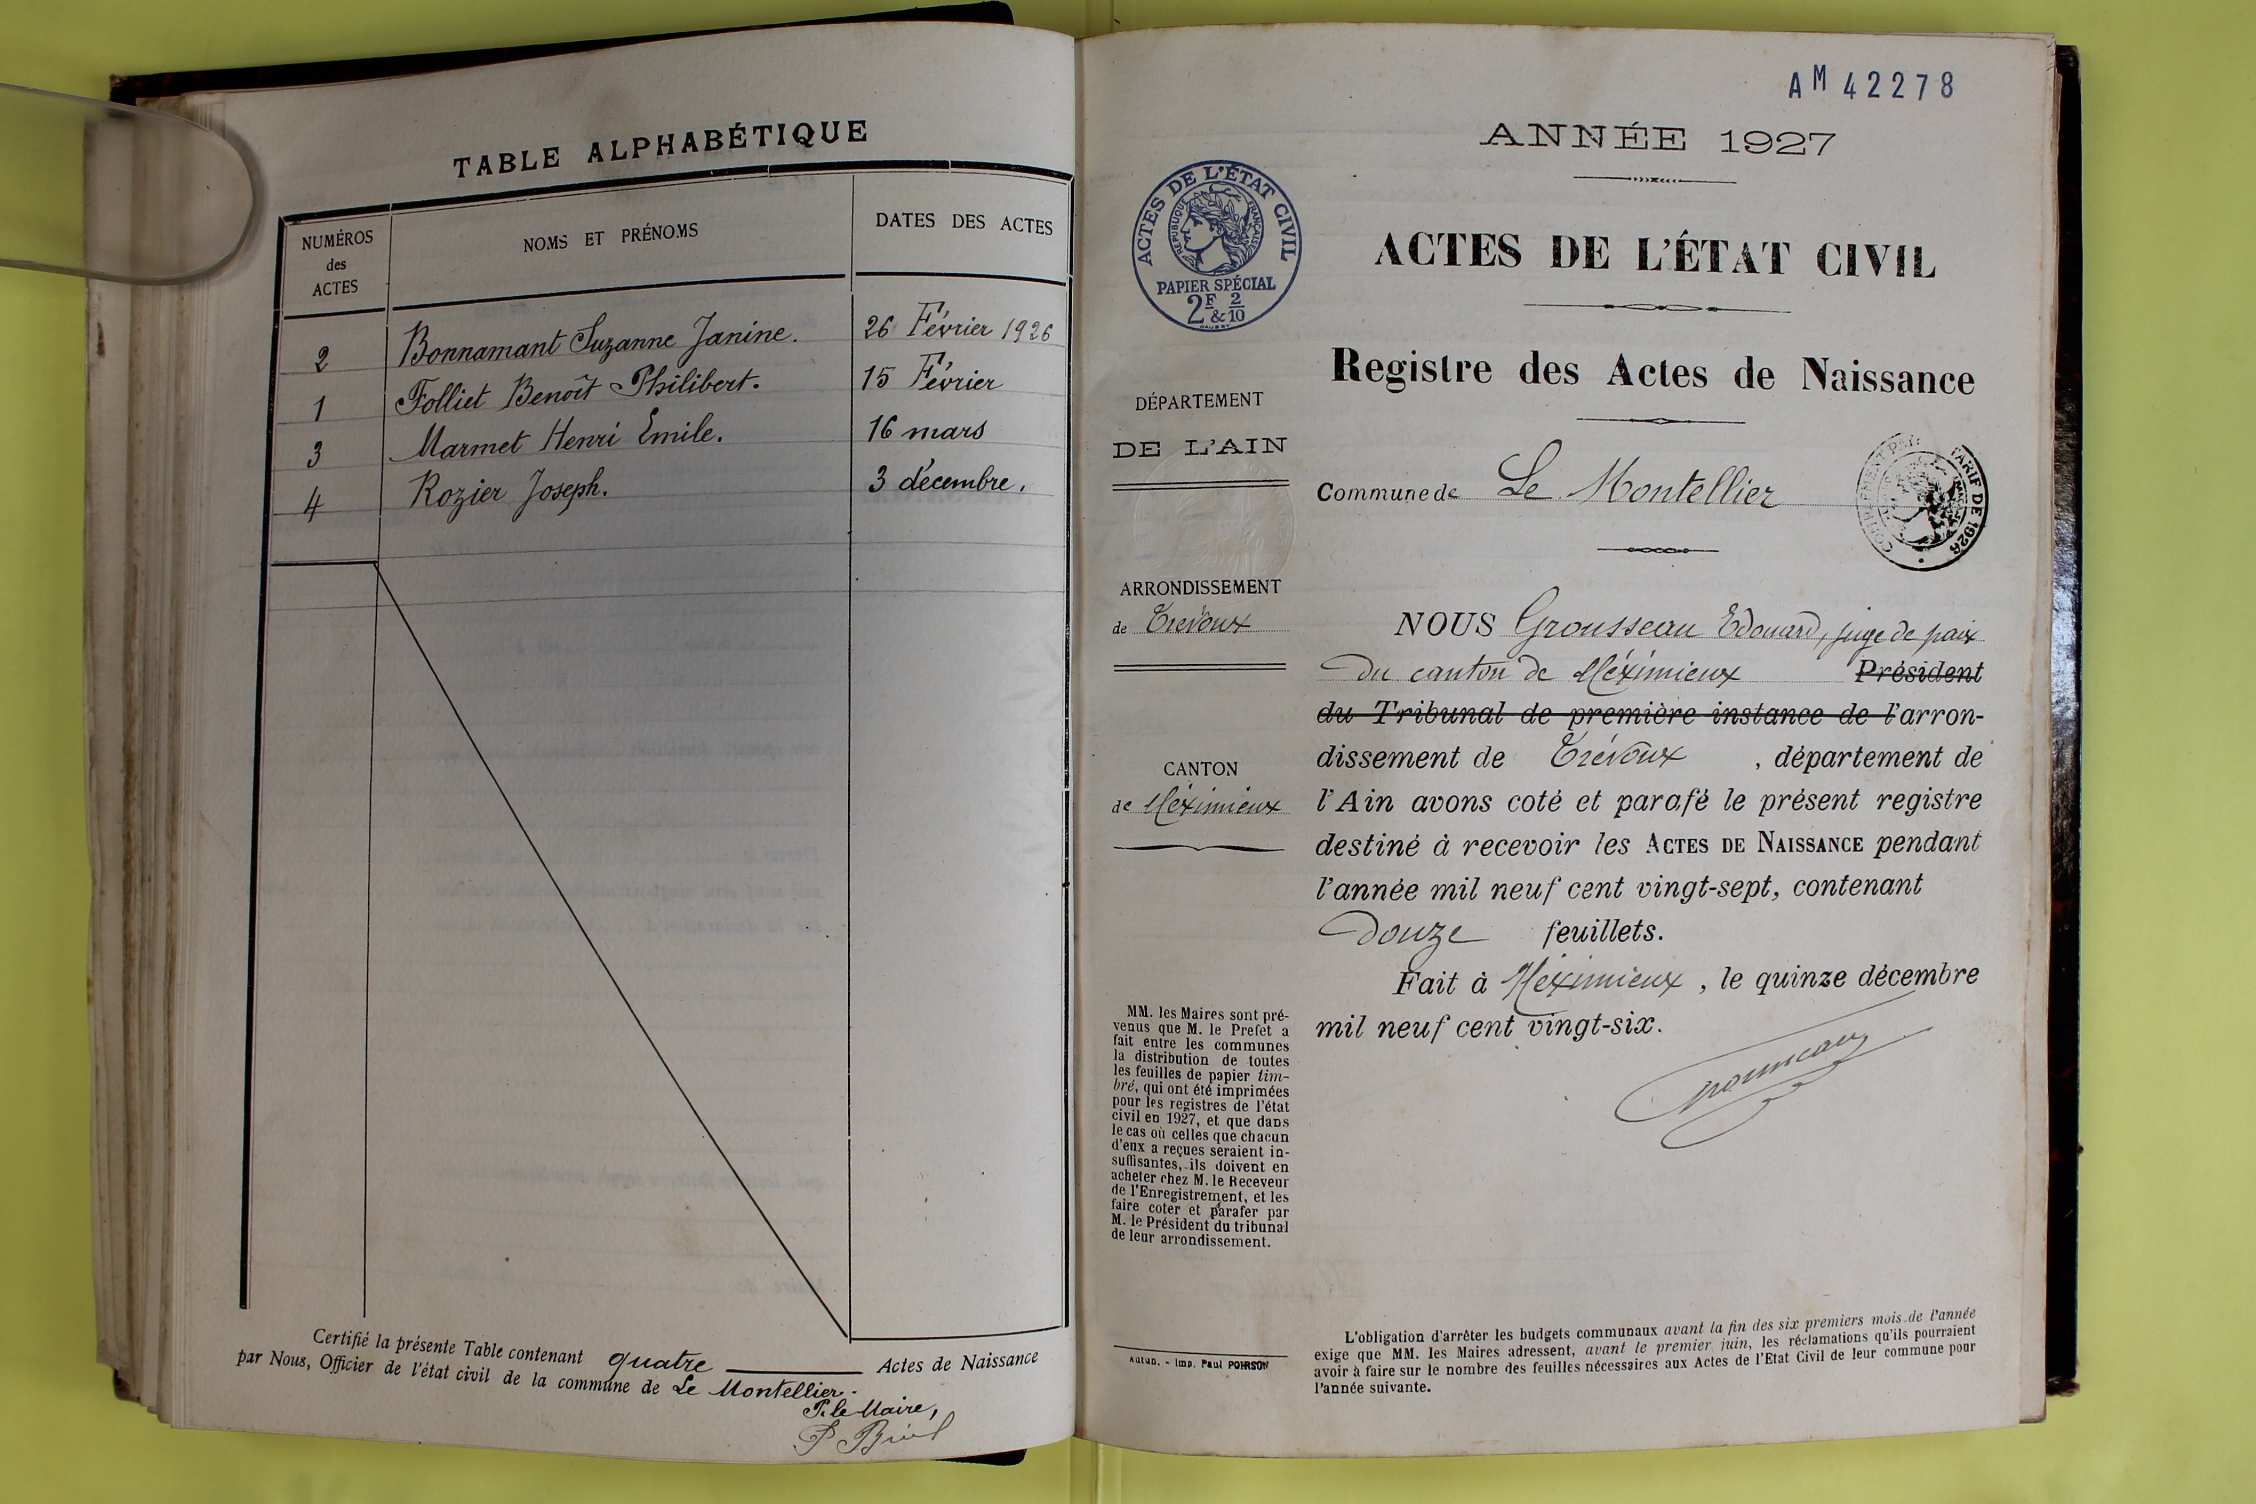 TABLE ALPHABÉTIQUE
NUMÉROS des ACTES
NOMS ET PRÉNOMS
DATES DES ACTES
2 Bonnamant Suzanne Janine. 26 Février 1926
1 Folliet Benoît Philibert. 15 Février
3 Marmet Henri Emile. 16 mars
4 Rozier Joseph. 3 décembre.
Certifié la présente Table contenant quatre Actes de Naissance
par Nous, Officier de l'état civil de la commune de Le Montellier.
P. le Maire,
AM 42278
ANNÉE 1927
ACTES DE L'ÉTAT CIVIL
RÉPUBLIQUE FRANÇAISE
PAPIER SPÉCIAL
2F & 2/10
ACTES DE L'ÉTAT CIVIL
Registre des Actes de Naissance
DÉPARTEMENT
DE L'AIN
Commune de Le Montellier
TARIF DE 1926
ARRONDISSEMENT
de Trévoux
CANTON
de Méximieux
NOUS Grousseau Edouard, juge de paix
du canton de Méximieux Président
du Tribunal de première instance de l'arron-
dissement de Trévoux, département de
l'Ain avons coté et parafé le présent registre
destiné à recevoir les ACTES DE NAISSANCE pendant
l'année mil neuf cent vingt-sept, contenant
douze feuillets.
Fait à Méximieux, le quinze décembre
mil neuf cent vingt-six.
MM. les Maires sont pré-
venus que M. le Prefet a
fait entre les communes
la distribution de toutes
les feuilles de papier tim-
bré, qui ont été imprimées
pour les registres de l'état
civil en 1927, et que dans
le cas où celles que chacun
d'eux a reçues seraient in-
suffisantes, ils doivent en
acheter chez M. le Receveur
de l'Enregistrement, et les
faire coter et parafer par
M. le Président du tribunal
de leur arrondissement.
Autun. - Imp. Paul POIRSON
L'obligation d'arrêter les budgets communaux avant la fin des six premiers mois de l'année
exige que MM. les Maires adressent, avant le premier juin, les réclamations qu'ils pourraient
avoir à faire sur le nombre des feuilles nécessaires aux Actes de l'Etat Civil de leur commune pour
l'année suivante.